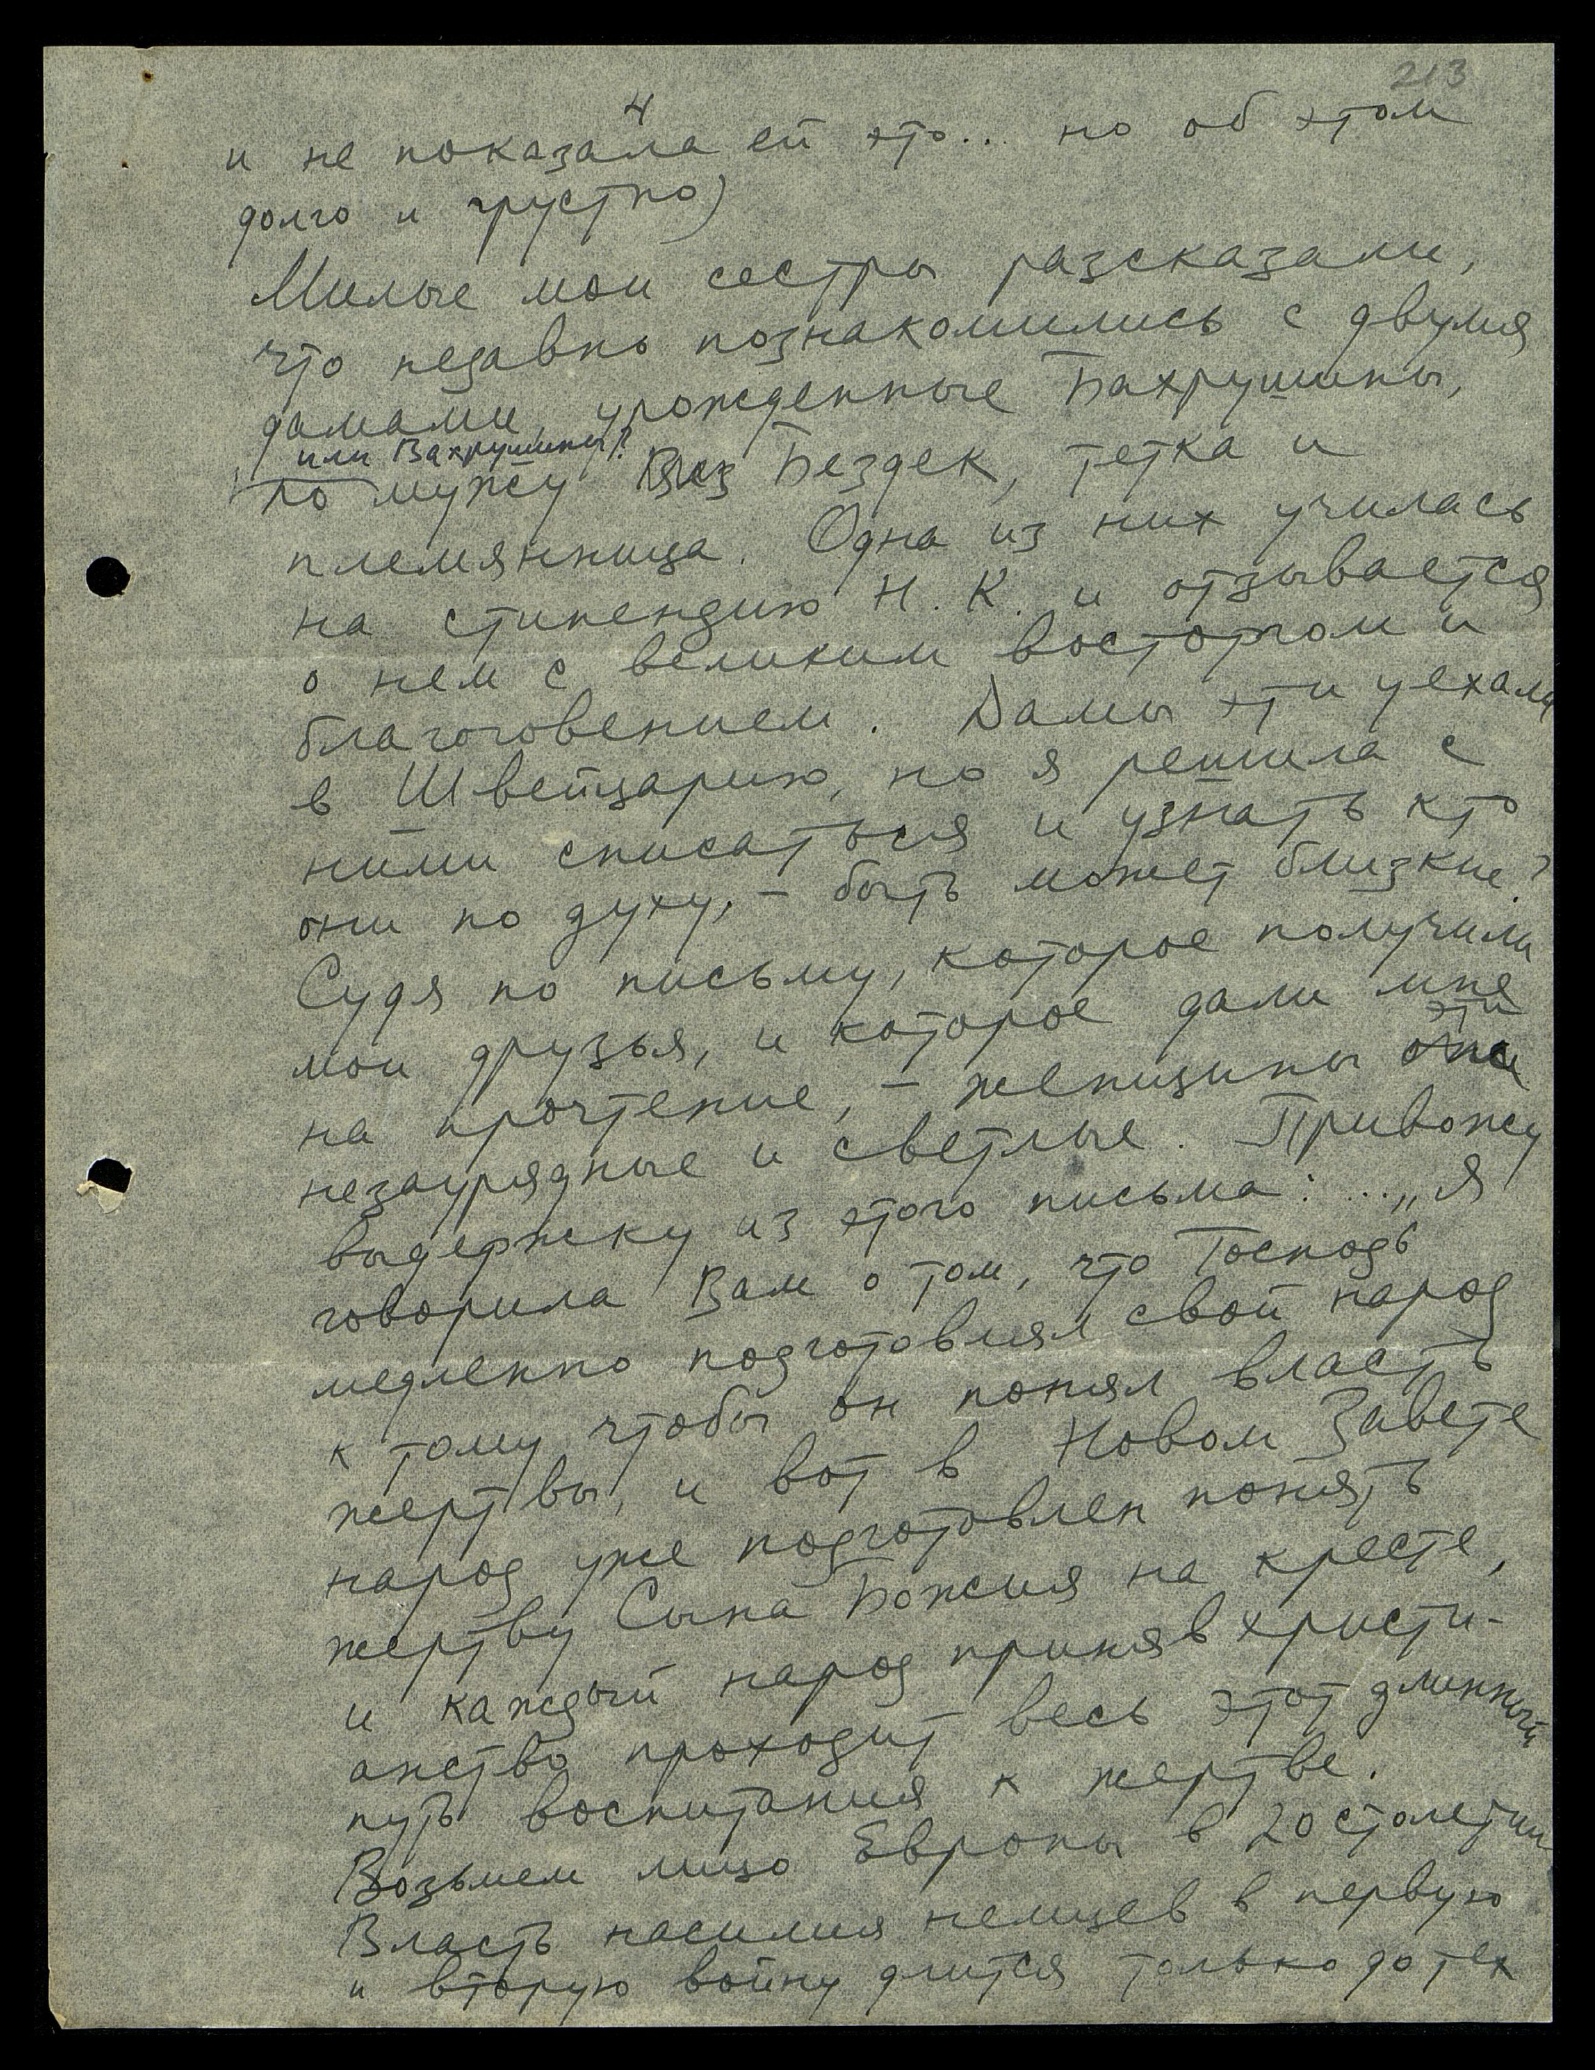 213
4
и не показала ей это... но об этом
долго и грустно)
Милые мои сестры разсказали,
что недавно познакомились с двумя
дамами, урожденные Бахрушины,
или Вахрушины?
по мужу Бездек, тетка и
племянница. Одна из них училась
на стипендию Н. К. и отзывается
о нем с великим восторгом и
благоговением. Дамы эти уехали
в Швейцарию, но я решила с
ними списаться и узнать кто
они по духу, – быть может близкие?
Судя по письму, которое получили
мои друзья, и которое дали мне
на прочтение, – женщины эти
незаурядные и светлые. Привожу
выдержку из этого письма: ... „Я
говорила Вам о том, что Господь
медленно подготовлял свой народ
к тому чтобы он понял власть
жертвы, и вот в Новом Завете
народ уже подготовлен понять
жертву Сына Божия на кресте,
и каждый народ приняв христи-
анство проходит весь этот длинный
путь воспитания к жертве.
Возьмем лицо Европы в 20 столетии
Власть насилия немцев в первую
и вторую войну длится только до тех